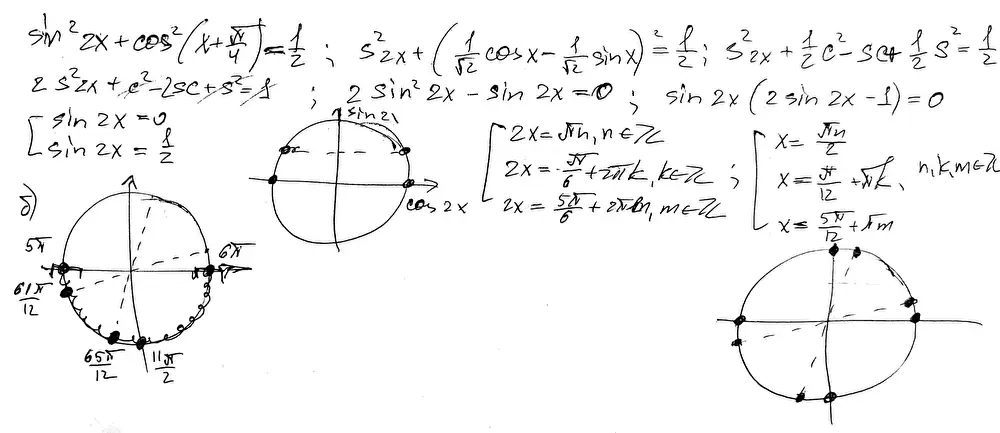 sin²2x + cos²(x + π/4) = 1/2 ; s²2x + (1/√2 cos x − 1/√2 sin x)² = 1/2 ; s²2x + 1/2 c² − sc + 1/2 s² = 1/2
2 s²2x + c² − 2sc + s² = 1 ; 2 sin² 2x − sin 2x = 0 ; sin 2x (2 sin 2x − 1) = 0
[ sin 2x = 0
sin 2x = 1/2
sin 2x
cos 2x
[ 2x = πn, n ∈ ℤ
2x = π/6 + 2πk, k ∈ ℤ
2x = 5π/6 + 2πm, m ∈ ℤ ;
[ x = πn/2
x = π/12 + πk, n, k, m ∈ ℤ
x = 5π/12 + πm
б)
5π 6π
61π/12
65π/12 11π/2